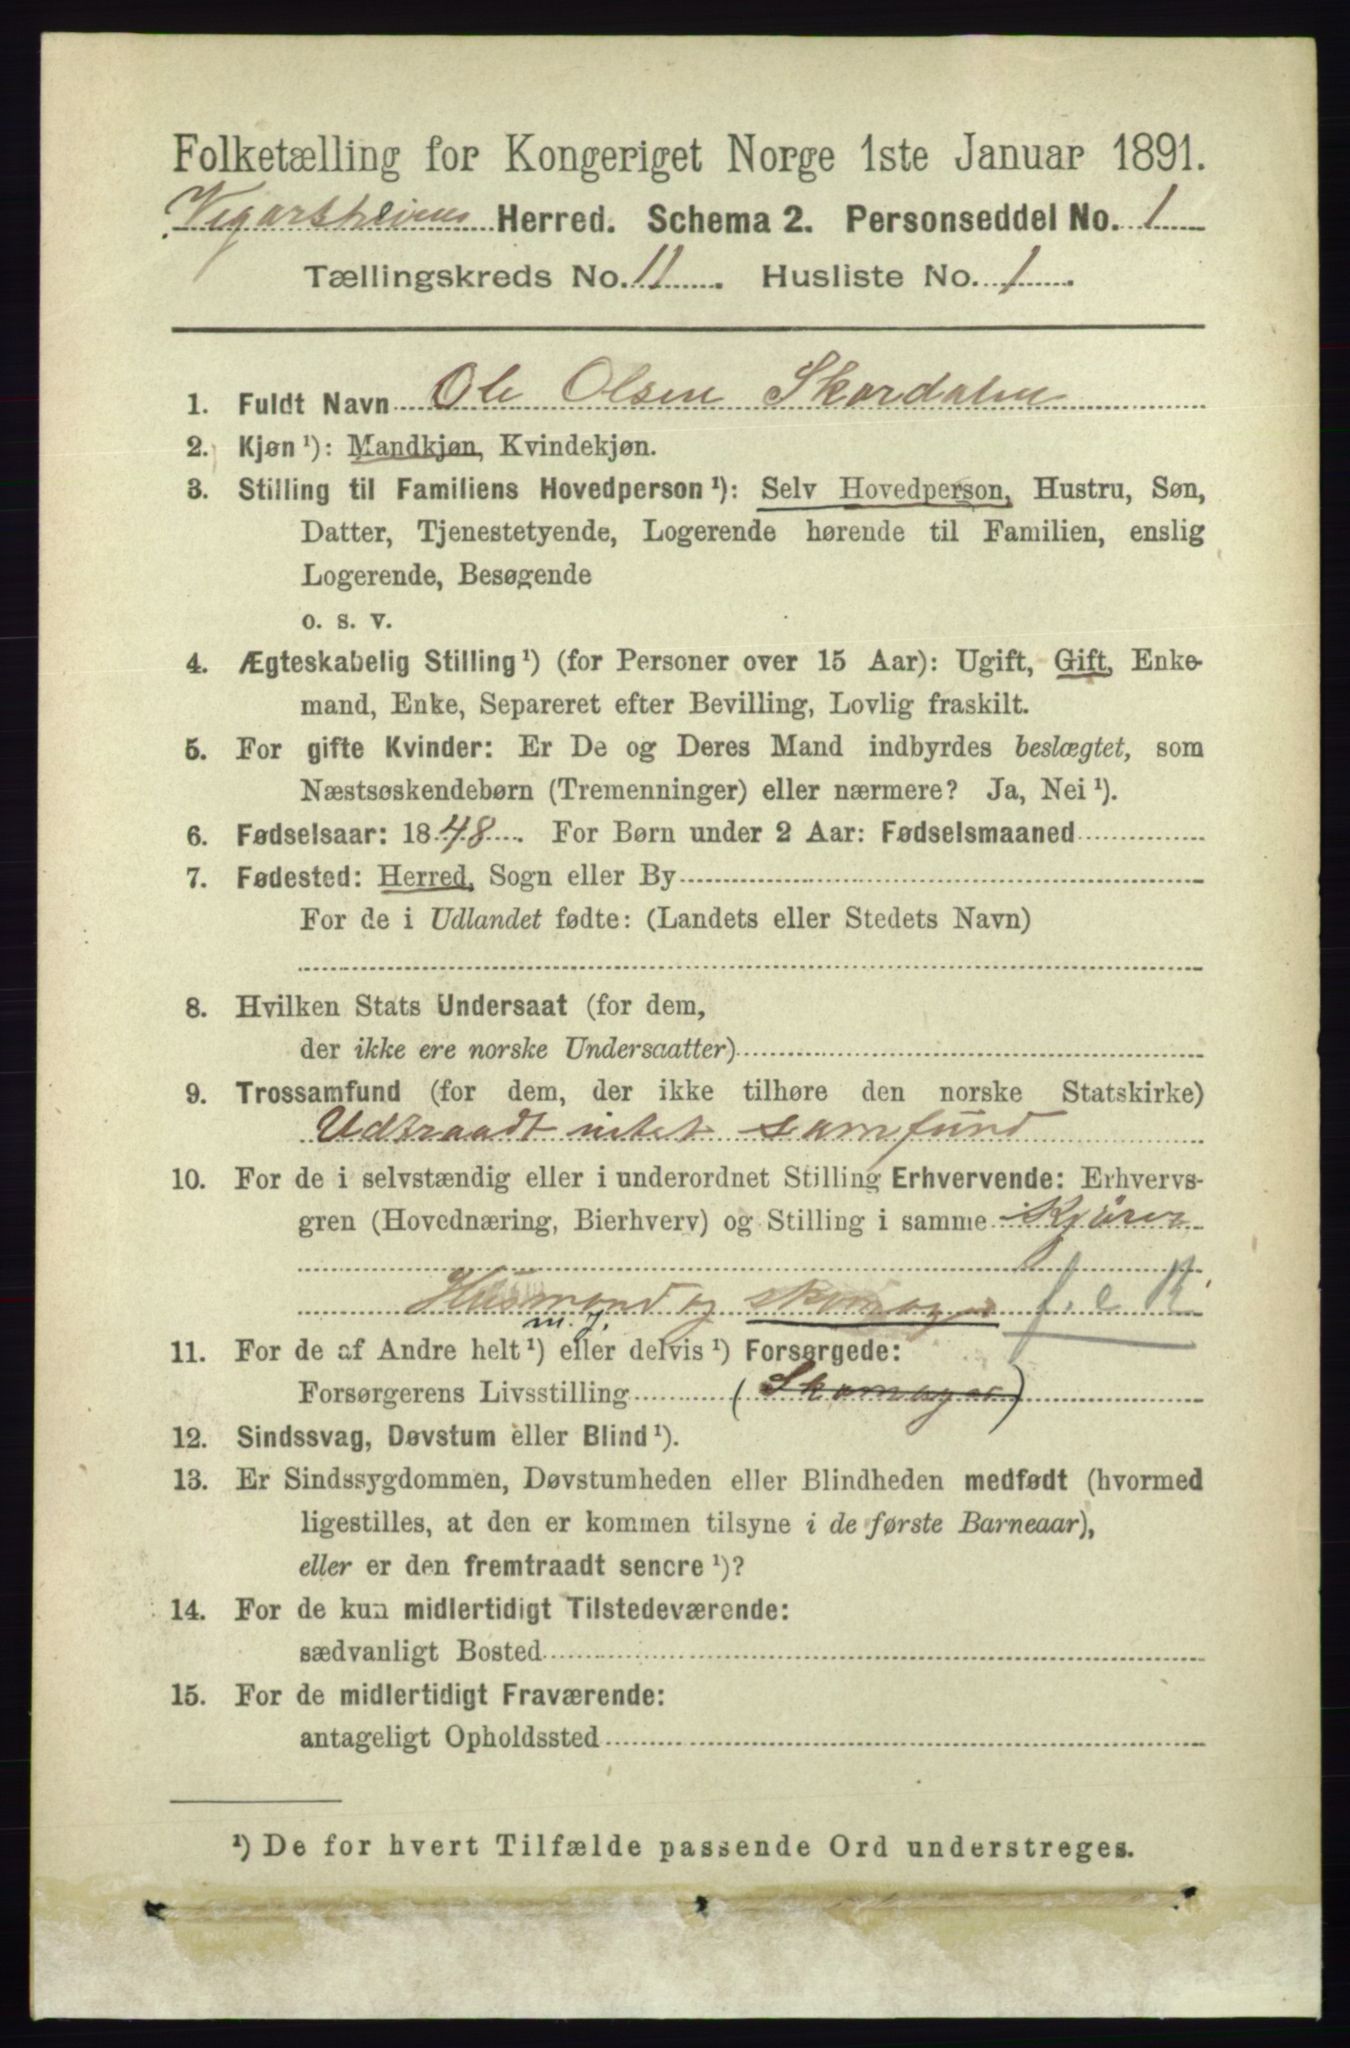 Folketælling for Kongeriget Norge 1ste Januar 1891.
Vegarsheiens Herred. Schema 2. Personseddel No. 1
Tællingskreds No. 11. Husliste No. 1.
1. Fuldt Navn Ole Olsen Skardalen
2. Kjøn ¹): Mandkjøn, Kvindekjøn.
3. Stilling til Familiens Hovedperson ¹): Selv Hovedperson, Hustru, Søn,
Datter, Tjenestetyende, Logerende hørende til Familien, enslig
Logerende, Besøgende
o. s. v.
4. Ægteskabelig Stilling ¹) (for Personer over 15 Aar): Ugift, Gift, Enke-
mand, Enke, Separeret efter Bevilling, Lovlig fraskilt.
5. For gifte Kvinder: Er De og Deres Mand indbyrdes beslægtet, som
Næstsøskendebørn (Tremenninger) eller nærmere? Ja, Nei ¹).
6. Fødselsaar: 1848. For Børn under 2 Aar: Fødselsmaaned
7. Fødested: Herred, Sogn eller By
For de i Udlandet fødte: (Landets eller Stedets Navn)
8. Hvilken Stats Undersaat (for dem,
der ikke ere norske Undersaatter)
9. Trossamfund (for dem, der ikke tilhøre den norske Statskirke)
Udtraadt intet samfund
10. For de i selvstændig eller i underordnet Stilling Erhvervende: Erhvervs-
gren (Hovednæring, Bierhverv) og Stilling i samme Kjører
Husmand og skomager f. e. R
m. j.
11. For de af Andre helt ¹) eller delvis ¹) Forsørgede:
Forsørgerens Livsstilling (Skomager)
12. Sindssvag, Døvstum eller Blind ¹).
13. Er Sindssygdommen, Døvstumheden eller Blindheden medfødt (hvormed
ligestilles, at den er kommen tilsyne i de første Barneaar),
eller er den fremtraadt senere ¹)?
14. For de kun midlertidigt Tilstedeværende:
sædvanligt Bosted
15. For de midlertidigt Fraværende:
antageligt Opholdssted
¹) De for hvert Tilfælde passende Ord understreges.